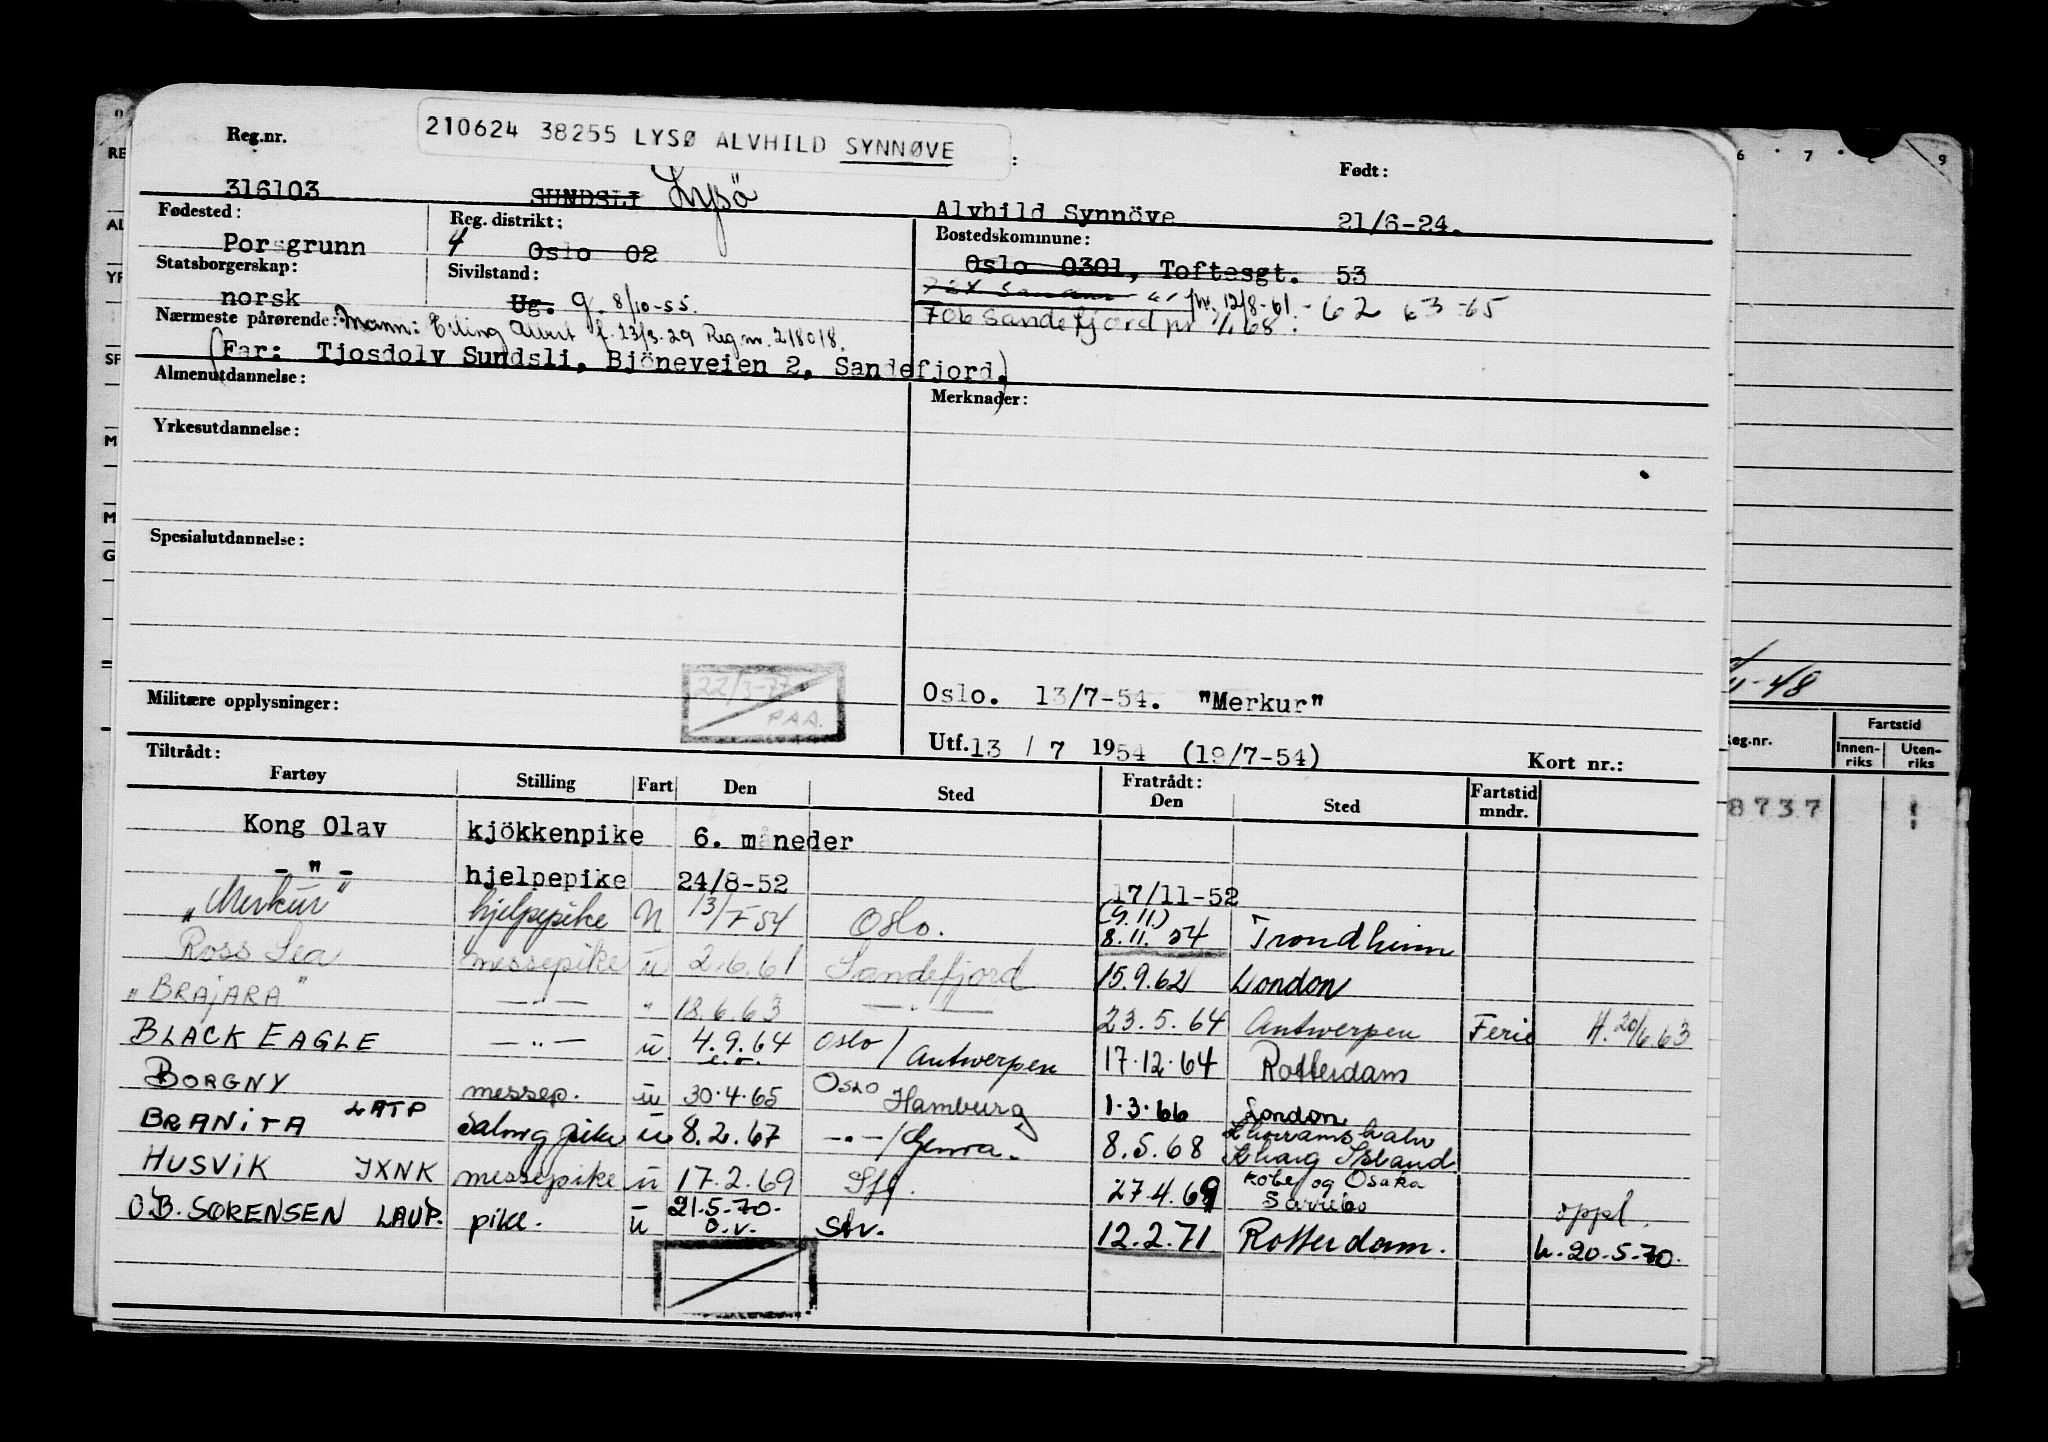 210624 38255 LYSØ ALVHILD SYNNØVE
Reg.nr. : Født:
316103 SUNDSLI Lysö Alvhild Synnöve 21/6-24.
Fødested: Reg. distrikt: Bostedskommune:
Porsgrunn 4 Oslo 02 Oslo 0301, Toftesgt. 53
Statsborgerskap: Sivilstand:
norsk Ug. g. 8/10-55. 12/8-61. - 62 63 -65
Nærmeste pårørende: Mann: Erling Albert f. 23/3-29 Reg.nr. 218018. 706 Sandefjord pr 1/1 68.
(Far: Tjosdolv Sundsli, Bjöneveien 2, Sandefjord.)
Almenutdannelse: Merknader:
Yrkesutdannelse:
Spesialutdannelse:
22/3-77
PAA.
Militære opplysninger: Oslo. 13/7-54. "Merkur"
Utf. 13 / 7 1954 (19/7-54) Kort nr.:
Tiltrådt: Fratrådt:
Fartøy Stilling Fart Den Sted Den Sted Fartstid mndr.
Kong Olav kjökkenpike 6. måneder
- " - hjelpepike 24/8-52 17/11-52
"Merkur" hjelpepike N 13/7 54 Oslo. (9.11) 8.11.54 Trondheim
Ross Sea messepike u 2.6.61 Sandefjord 15.9.62 London
"BRAJARA" — " — " 18.6.63 — " — 23.5.64 Antwerpen Ferie H. 20/6.63
BLACK EAGLE — " — u 4.9.64 e.o. Oslo / Antwerpen 17.12.64 Rotterdam
BORGNY LATP messep. u 30.4.65 Oslo Hamburg 1.3.66 London
BRANITA Salongpike u 8.2.67 — " — / Genova. 8.5.68 Kharg Island
HUSVIK JXNK messepike u 17.2.69 Sfj. 27.4.69 Kobe og Osaka
O.B. SØRENSEN LAUP. pike. u 21.5.70. o.v. Stv. 12.2.71 Rotterdam. oppl. h. 20.5.70.
6 7 9
48
Reg.nr. Fartstid
Innenriks Utenriks
8737